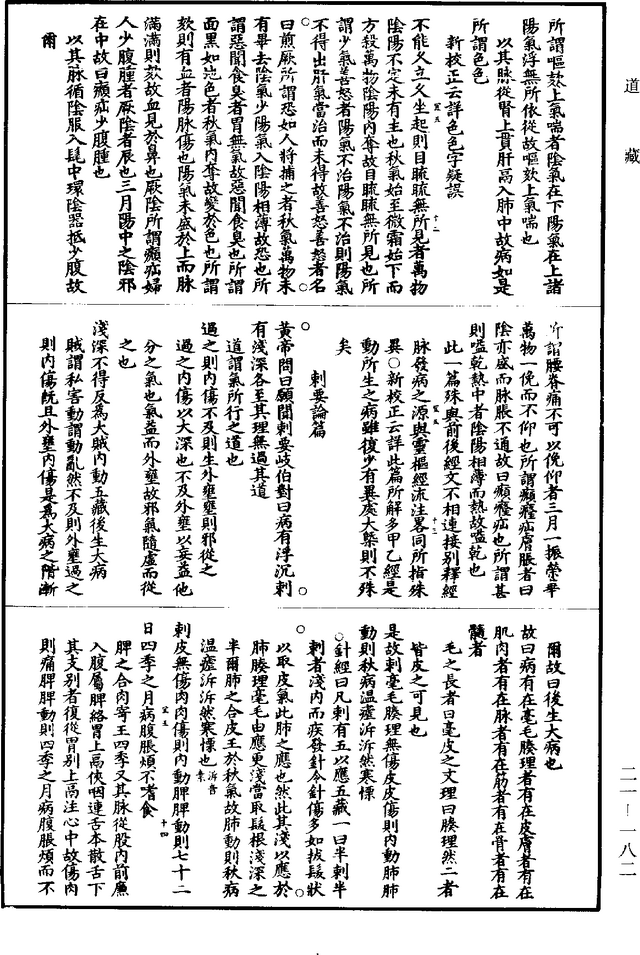 道藏
所謂嘔欬上氣喘者陰氣在下陽氣在上諸
陽氣浮無所依從故嘔欬上氣喘也
以其脉從腎上貫肝鬲入肺中故病如是
所謂色色
新校正云詳色色字疑誤
不能久立久坐起則目䀮䀮無所見者萬物
陰陽不定未有主也秋氣始至微霜始下而
方殺萬物陰陽内奪故目䀮䀮無所見也所
謂少氣善怒者陽氣不治陽氣不治則陽氣
不得出肝氣當治而未得故善怒善怒者名
曰煎厥所謂恐如人將捕之者秋氣萬物未
有畢去陰氣少陽氣入陰陽相薄故恐也所
謂惡聞食臭者胃無氣故惡聞食臭也所謂
面黑如地色者秋氣内奪故變於色也所謂
欬則有血者陽脉傷也陽氣未盛於上而脉
滿滿則欬故血見於鼻也厥陰所謂癩疝婦
人少腹腫者厥陰者辰也三月陽中之陰邪
在中故曰癩疝少腹腫也
以其脉循陰股入髦中環陰器抵少腹故
爾
所謂腰脊痛不可以俛仰者三月一振榮華
萬物一俛而不仰也所謂癩癃疝膚脹者曰
陰亦盛而脉脹不通故曰癩癃疝也所謂甚
則嗌乾熱中者陰陽相薄而熱故嗌乾也
此一篇殊與前後經文不相連接别釋經
脉發病之源與靈樞經流注畧同所指殊
異○新校正云詳此篇所解多甲乙經是
動所生之病雖復少有異處大槩則不殊
矣
刺要論篇
黄帝問曰願聞刺要岐伯對曰病有浮沉刺
有淺深各至其理無過其道
道謂氣所行之道也
過之則内傷不及則生外壅壅則邪從之
過之内傷以大深也不及外壅以妄益他
分之氣也氣益而外壅故邪氣隨虚而從
之也
淺深不得反爲大賊内動五藏後生大病
賊謂私害動謂動亂然不及則外壅過之
則内傷旣且外壅内傷是爲大病之階漸
爾故曰後生大病也
故曰病有在毫毛腠理者有在皮膚者有在
肌肉者有在脉者有在筋者有在骨者有在
髓者
毛之長者曰毫皮之文理曰腠理然二者
皆皮之可見也
是故刺毫毛腠理無傷皮皮傷則内動肺肺
動則秋病温瘧泝泝然寒慄
○針經曰凡刺有五以應五藏一曰半刺半
刺者淺内而疾發針令針傷多如拔髮狀
以取皮氣此肺之應也然此其淺以應於
肺腠理毫毛由應更淺當取髮根淺深之
半爾肺之合皮王於秋氣故肺動則秋病
温瘧泝泝然寒慄也泝音素
刺皮無傷肉肉傷則内動脾脾動則七十二
日四季之月病腹脹煩不嗜食
脾之合肉寄王四季又其脉從股内前廉
入腹屬脾絡胃上鬲俠咽連舌本散舌下
其支别者復從胃别上鬲注心中故傷肉
則痛脾脾動則四季之月病腹脹煩而不
二一－一八二